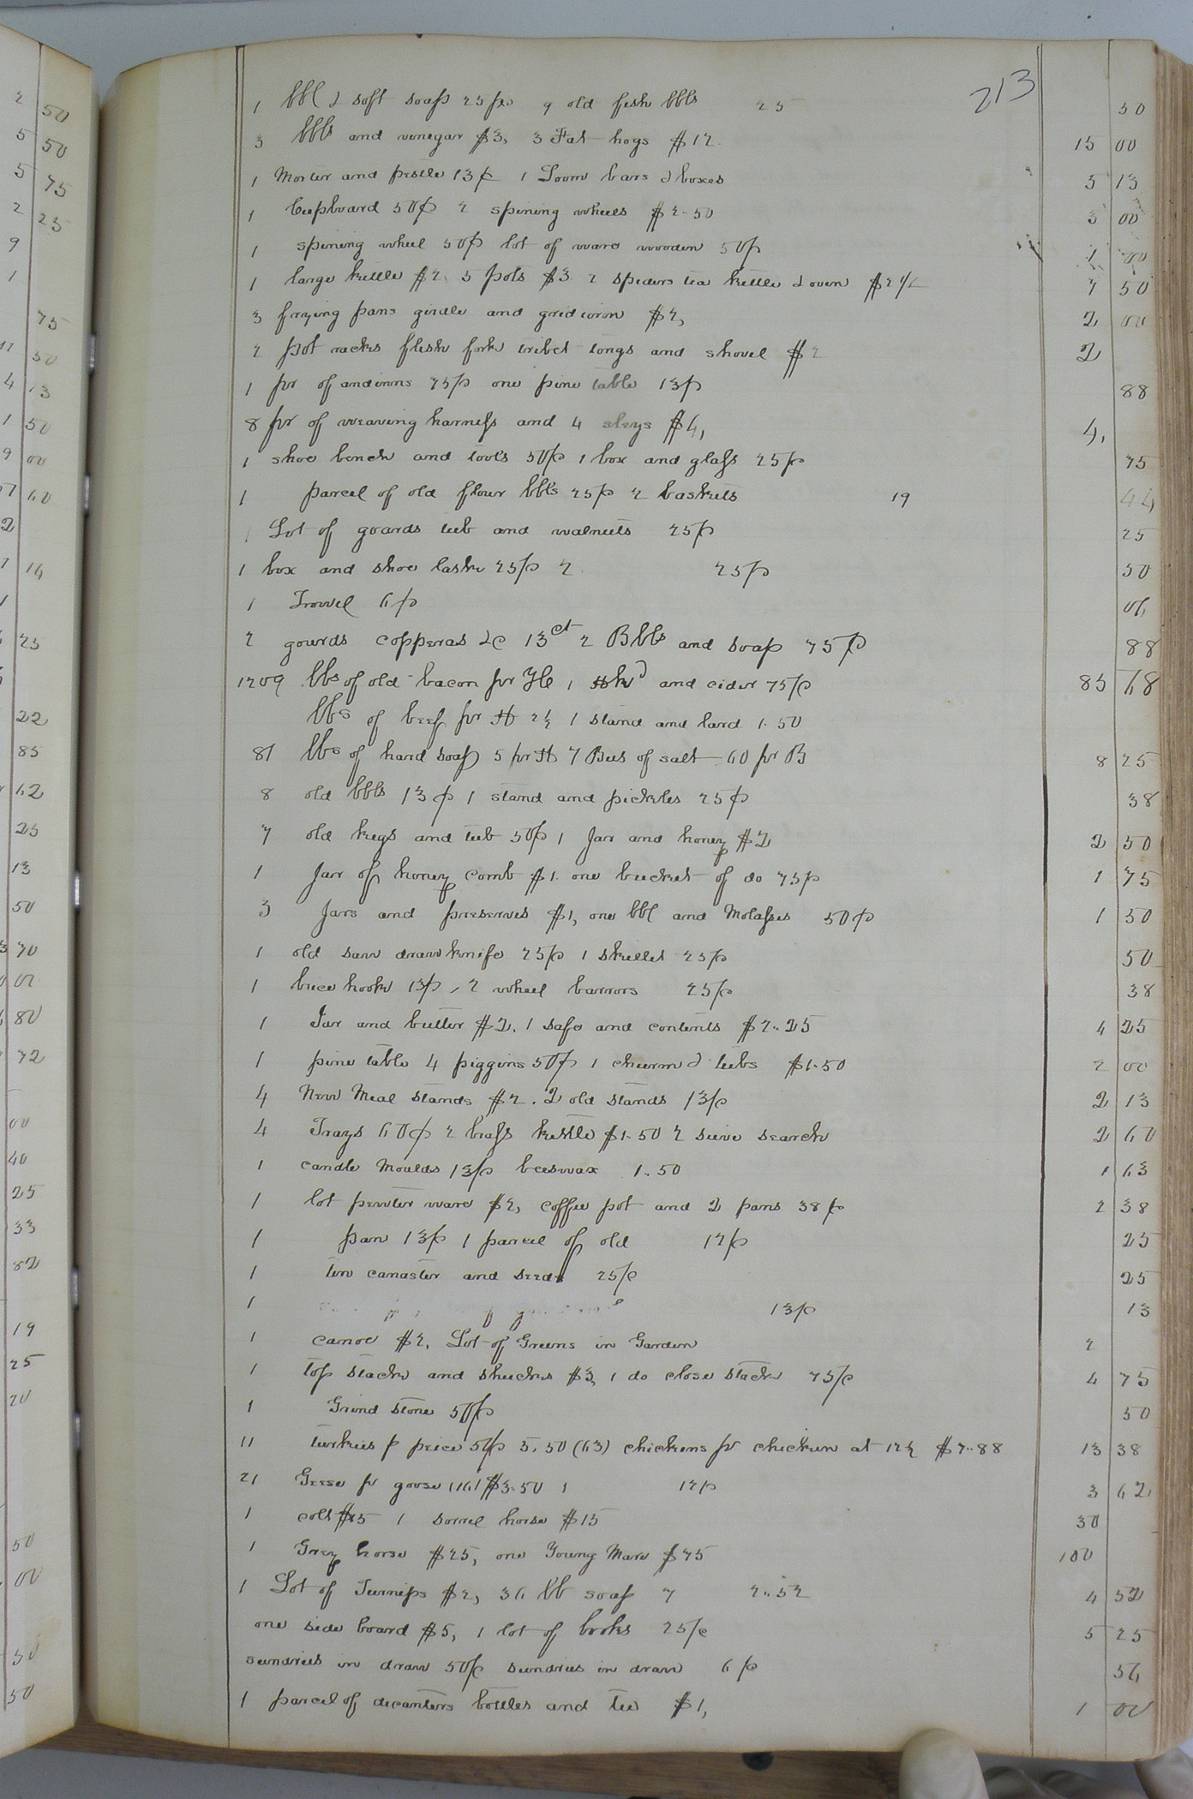 213
1 bbl & soft soap 25 pr 9 old fish bbls 25 50
3 bbls and vinegar $3, 3 Fat hogs $12. 15 00
1 Morter and pestle 13 p 1 Loom bars & boxes 5 13
1 Cupboard 50 p 2 spining wheels $2.50 3 00
1 spining wheel 50 p lot of ware wooden 50 p 1 00
1 large kettle $2. 5 pots $3. 2 spiders tea kettle & oven $2 1/2 7 50
3 frying pans girdle and gridiron $2, 2 00
2 pot racks flesh fork tribet tongs and shovel $2 2
1 pr of andirons 75 p one pine table 13 p 88
8 pr of weaving harness and 4 sleys $4, 4,
1 shoe bench and tools 50 p 1 box and glass 25 p 75
1 parcel of old flour bbls 25 p 2 baskets 19 44
1 Lot of goards tub and walnuts 25 p 25
1 box and shoe lasts 25 p 2 25 p 50
1 Trowel 6 p 06
2 gourds copperas &c 13 ct 2 Bbls and soap 75 p 88
1209 lbs of old bacon pr 7c 1 Hhd and cider 75/c 85 68
lbs of beef pr H 2 1/2 1 stand and lard 1.50
81 lbs of hard soap 5 pr H 7 Bus of salt 60 pr B 8 25
8 old bbls 13 p 1 stand and pickles 25 p 38
7 old kegs and tub 50 p 1 Jar and honey $2 2 50
1 Jar of honey comb $1. one bucket of do 75 p 1 75
3 Jars and preserves $1, one bbl and Molasses 50 p 1 50
1 old saw drawknife 25 p 1 skillet 25 p 50
1 bree hook 13 p, 2 wheel barrors 25/c 38
1 Jar and butter $2. 1 safe and contents $2.25 4 25
1 pine table 4 piggins 50 p 1 churm & tubs $1.50 2 00
4 New Meal stands $2. 2 old stands 13/c 2 13
4 Trays 60 p 2 brass kettle $1.50 2 sieve search 2 60
1 candle Moulds 13 p beeswax 1.50 1 63
1 lot pewter ware $2, coffee pot and 2 pans 38 p 2 38
1 pan 13 p 1 parcel of old 12 p 25
1 tin canaster and seeds 25/c 25
1 13 p 13
1 canoe $2. Lot of Greens in Garden 2
1 top stacks and shucks $3, 1 do close stacks 75/c 4 75
1 Grind stone 50 p 50
11 turkies p price 50 p 5.50 (63) chickens pr chicken at 12 1/2 $7.88 13 38
21 Geese pr goose $3.50 1 12 p 3 62
1 colt $15 1 sorrel horse $15 30
1 Grey horse $25, one Young Mare $75 100
1 Lot of Turnips $2, 36 lb soap 7 2.52 4 52
one side board $5, 1 lot of books 25/c 5 25
sundries in draw 50/c sundries in draw 6 p 56
1 parcel of decanters bottles and tub $1, 1 00